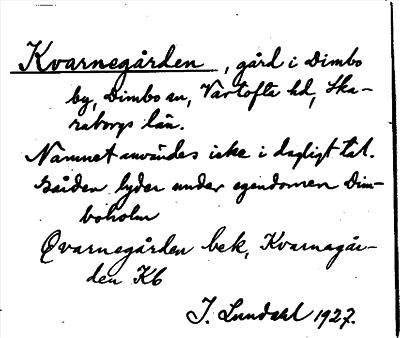 Kvarnegården, gård i Dimbo
by, Dimbo sn, Vartofta hd, Ska-
raborgs län.
Namnet användes icke i dagligt tal.
Gården lyder under egendomen Dim-
boholm
Qvarnegården bek, Kvarnegår-
den Kb
I. Lundahl 1927.